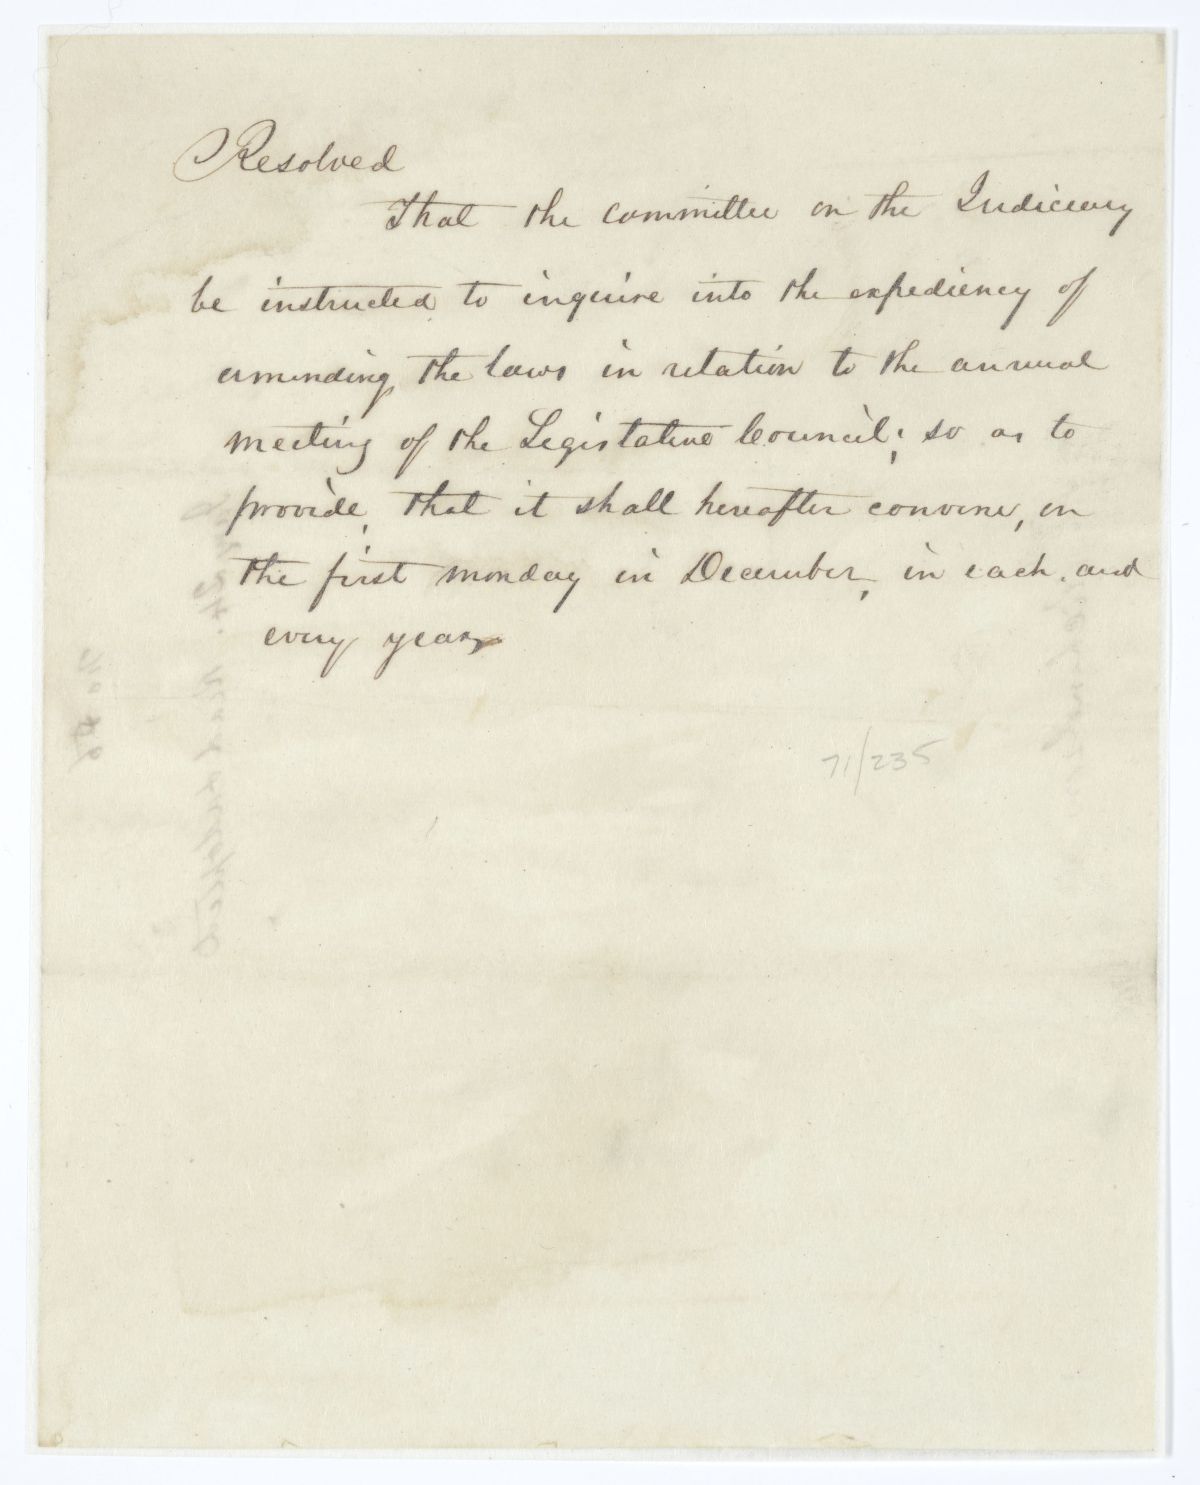 Resolved
That the committee on the Judiciary
be instructed to inquire into the expediency of
amending the laws in relation to the annual
meeting of the Legislative Council; so as to
provide, that it shall hereafter convene, on
the first monday in December, in each and
every year
71/235